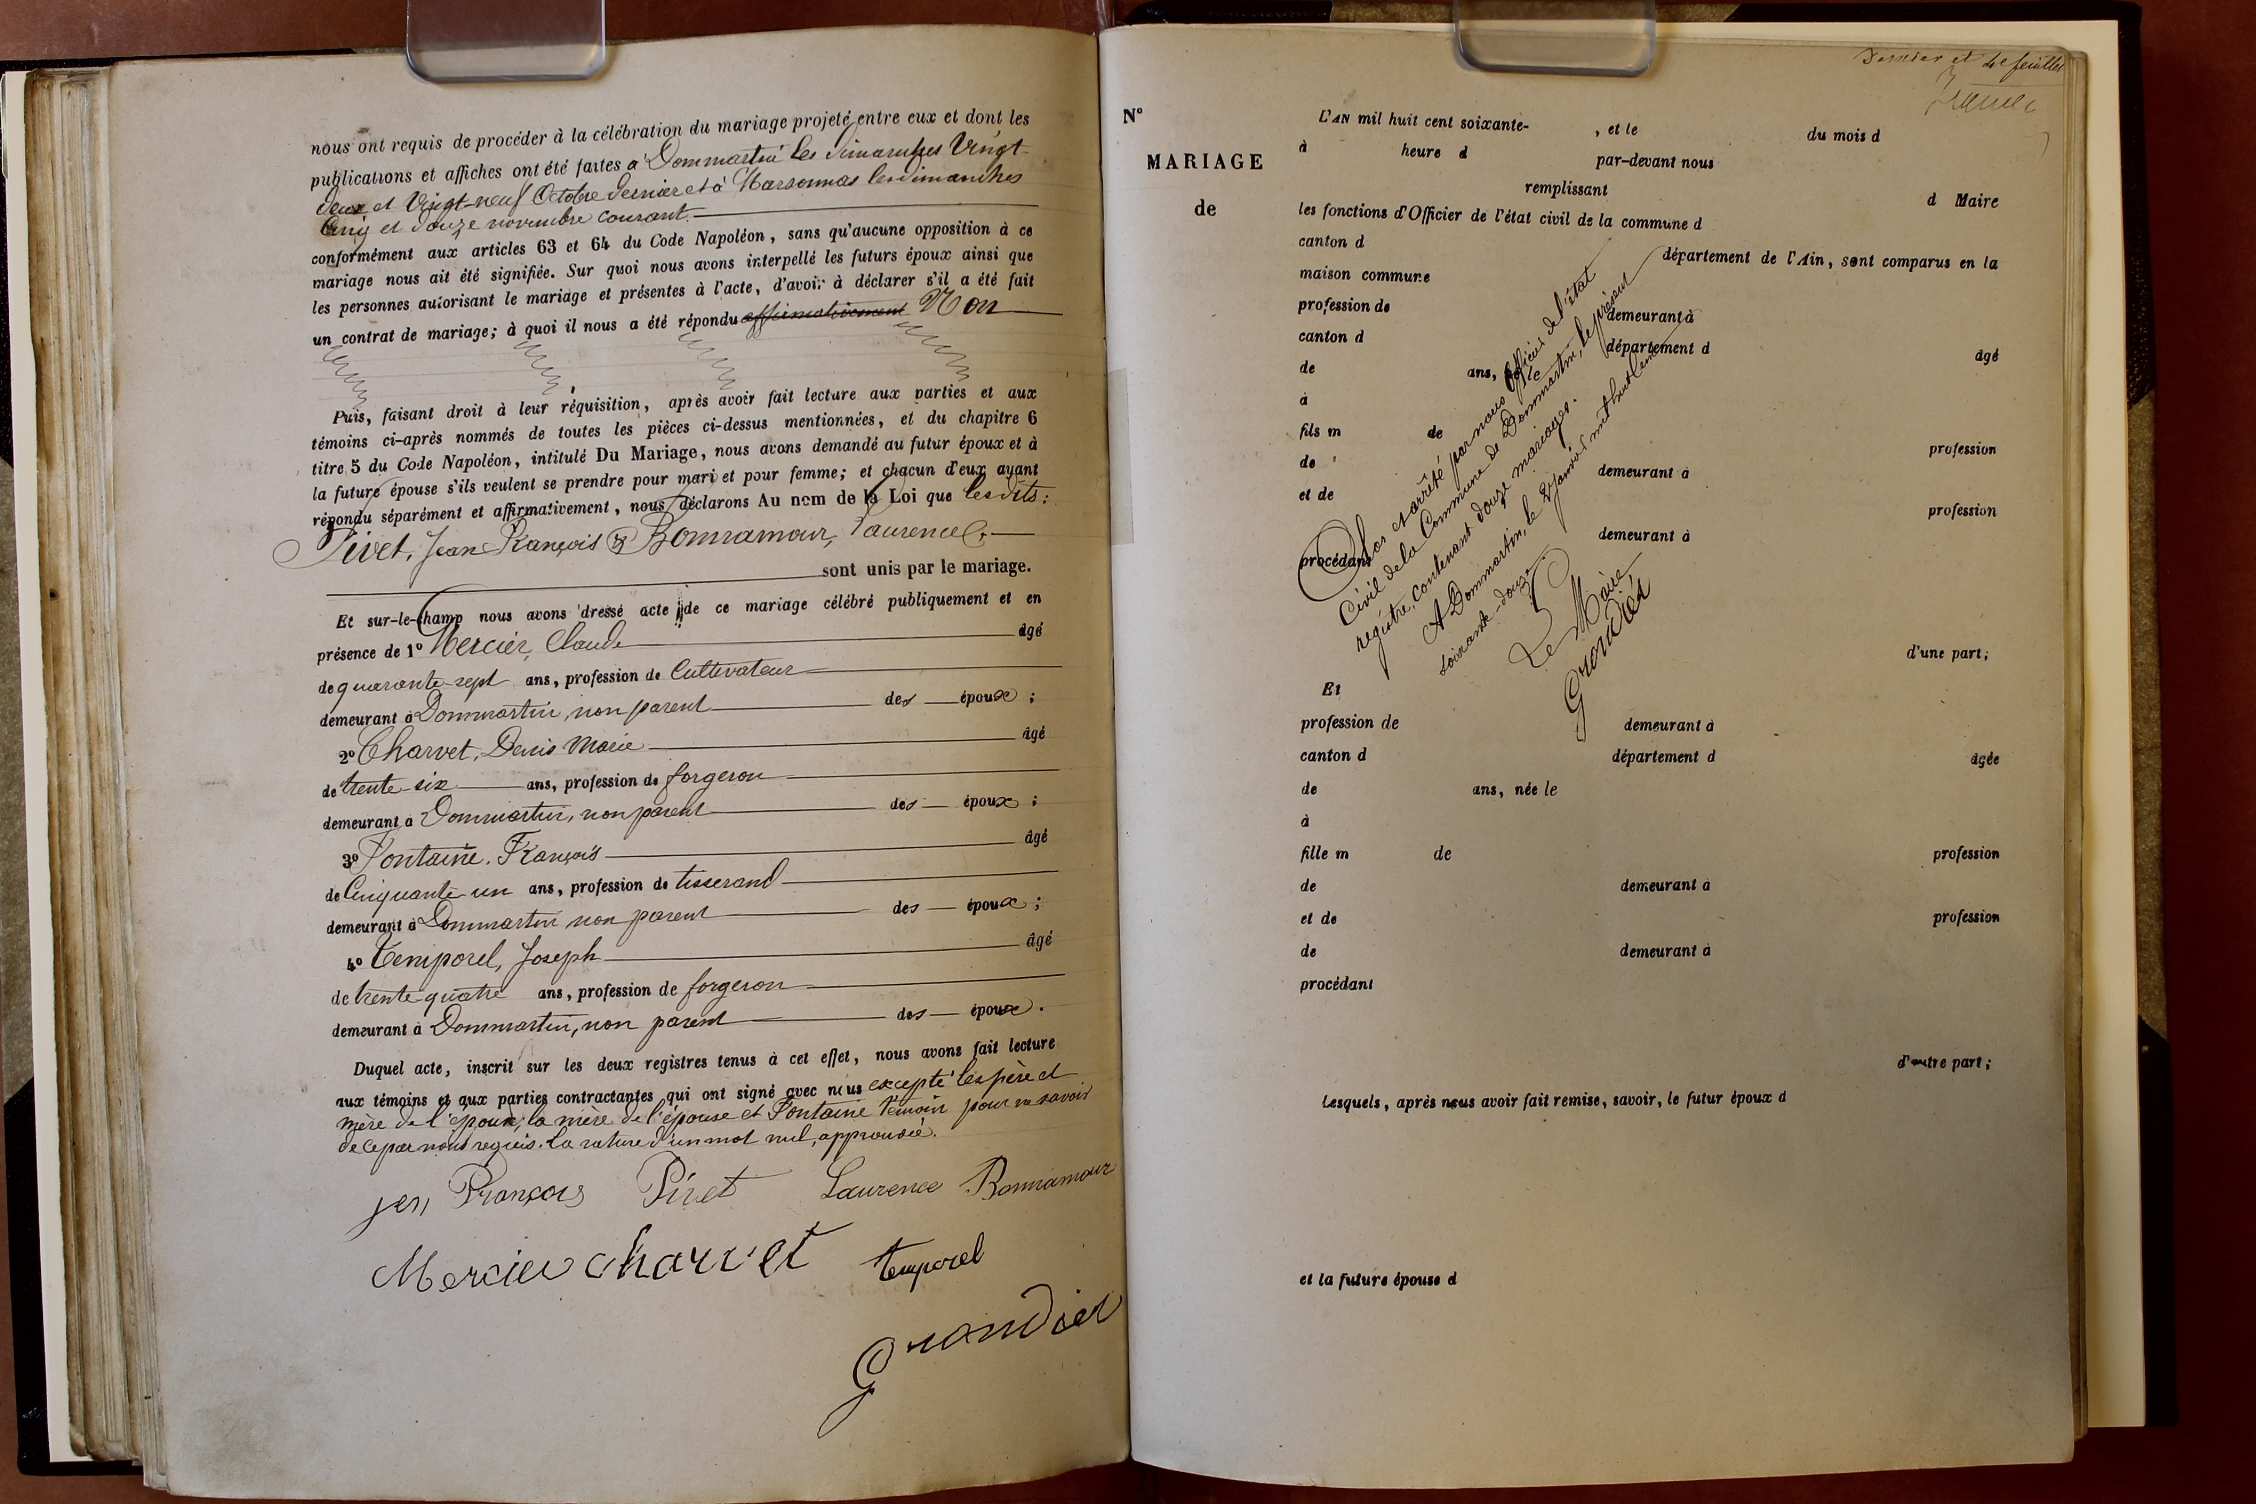 nous ont requis de procéder à la célébration du mariage projeté entre eux et dont les
publications et affiches ont été faites à Dommartin les dimanches Vingt-
deux et Vingt-neuf Octobre dernier et à Marsonnas les dimanches
Cinq et douze novembre courant.
conformément aux articles 63 et 64 du Code Napoléon, sans qu'aucune opposition à ce
mariage nous ait été signifiée. Sur quoi nous avons interpellé les futurs époux ainsi que
les personnes autorisant le mariage et présentes à l'acte, d'avoir à déclarer s'il a été fait
un contrat de mariage; à quoi il nous a été répondu affirmativement Non
Puis, faisant droit à leur réquisition, après avoir fait lecture aux parties et aux
témoins ci-après nommés de toutes les pièces ci-dessus mentionnées, et du chapitre 6
titre 5 du Code Napoléon, intitulé Du Mariage, nous avons demandé au futur époux et à
la future épouse s'ils veulent se prendre pour mari et pour femme; et chacun d'eux ayant
répondu séparément et affirmativement, nous déclarons Au nom de la Loi que lesdits:
Pivet, Jean François & Bonnamour, Laurence
sont unis par le mariage.
Et sur-le-champ nous avons dressé acte de ce mariage célébré publiquement et en
présence de 1° Mercier, Claude âgé
de quarante-sept ans, profession de Cultivateur
demeurant à Dommartin, non parent des époux;
2° Charvet, Denis Marie âgé
de trente-six ans, profession de forgeron
demeurant à Dommartin, non parent des époux;
3° Fontaine, François âgé
de Cinquante-un ans, profession de tisserand
demeurant à Dommartin non parent des époux;
4° Temporel, Joseph âgé
de trente-quatre ans, profession de forgeron
demeurant à Dommartin, non parent des époux.
Duquel acte, inscrit sur les deux registres tenus à cet effet, nous avons fait lecture
aux témoins et aux parties contractantes qui ont signé avec nous excepté les père et
mère de l'époux, la mère de l'épouse et Fontaine témoin pour ne savoir
de ce par nous requis. La rature d'un mot nul, approuvée.
jen François Pivet Laurence Bonnamour
Mercier Charvet temporel
Grandier
Dernier et 4e feuillet
N° L'AN mil huit cent soixante- , et le du mois d
à heure d par-devant nous
MARIAGE
remplissant d Maire
de
les fonctions d'Officier de l'état civil de la commune d
canton d département de l'Ain, sont comparus en la
maison commune
profession de demeurant à
canton d département d âgé
de ans, né le
à
fils m de profession
de demeurant à
et de profession
demeurant à
procédant
Clos et arrêté par nous Officier de l'état
Civil de la Commune de Dommartin, le présent
registre, contenant douze mariages.
A Dommartin, le 1er Janvier mil huit cent
soixante-douze.
Le Maire
Grandier
d'une part;
Et
profession de demeurant à
canton d département d âgée
de ans, née le
à
fille m de profession
de demeurant à
et de profession
de demeurant à
procédant
d'autre part;
Lesquels, après nous avoir fait remise, savoir, le futur époux d
et la future épouse d